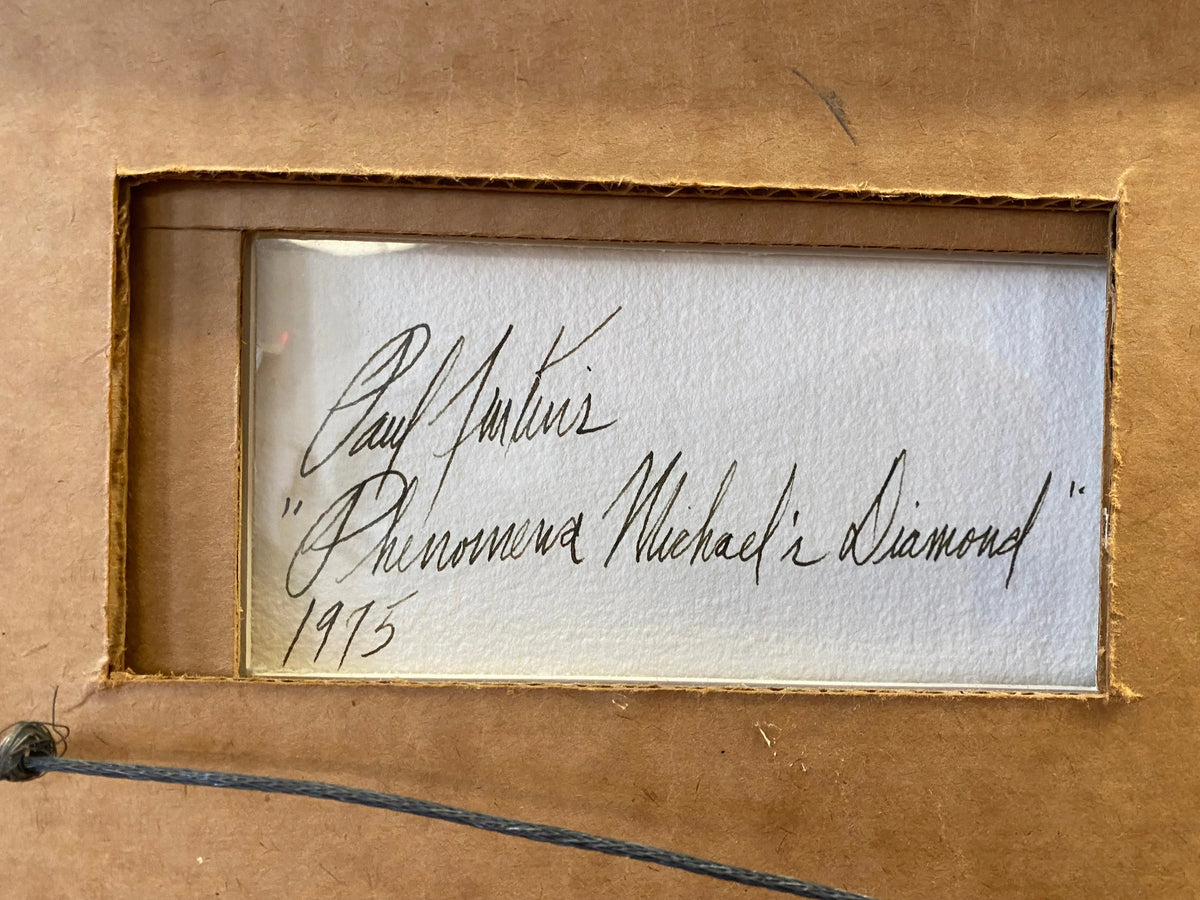 Paul Jenkins
"Phenomena Michael's Diamond"
1975